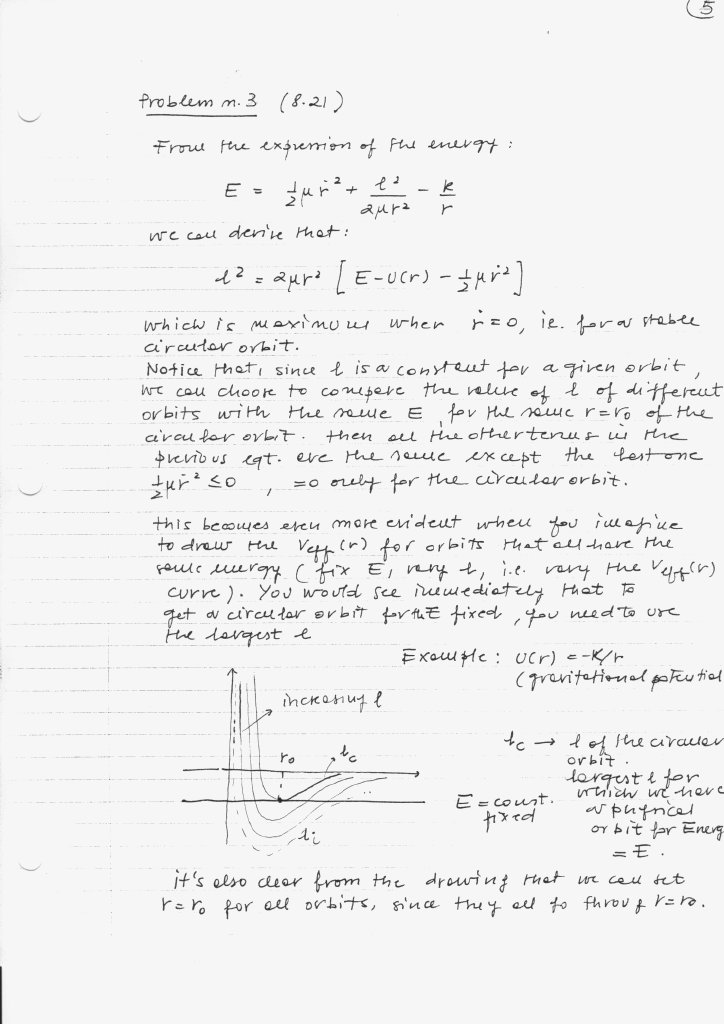 5
Problem n. 3 (8.21)
From the expression of the energy :
E = ½ μ ṙ² + l²/2μr² - k/r
we can derive that :
l² = 2μr² [ E - U(r) - ½ μṙ² ]
which is maximum when ṙ = 0, ie. for a stable
circular orbit.
Notice that, since l is a constant for a given orbit,
we can choose to compare the value of l of different
orbits with the same E for the same r = r₀ of the
circular orbit. then all the other terms in the
previous eqt. are the same except the last one
½ μṙ² ≤ 0 , = 0 only for the circular orbit.
this becomes even more evident when you imagine
to draw the Veff (r) for orbits that all have the
same energy ( fix E, vary l, i.e. vary the Veff(r)
curve ). You would see immediately that to
get a circular orbit for the E fixed, you need to use
the largest l
Example : U(r) = -K/r
( gravitational potential
increasing l
r₀
lc
lc → l of the circular
orbit .
largest l for
which we have
a physical
orbit for Energ
= E .
E = const.
fixed
li
it's also clear from the drawing that we can set
r = r₀ for all orbits, since they all go throug r = r₀.